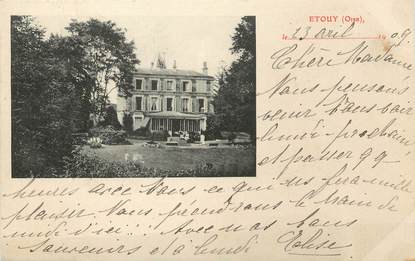 ETOUY (Oise),
le 23 avril 1909
Chère Madame
Nous pensons
venir vous voir
lundi prochain
et passer 99
heures avec vous ce qui ns fera mille
plaisir. Nous prendrons le train de
midi d'ici!!! Avec nos bons
souvenirs et à lundi Elise